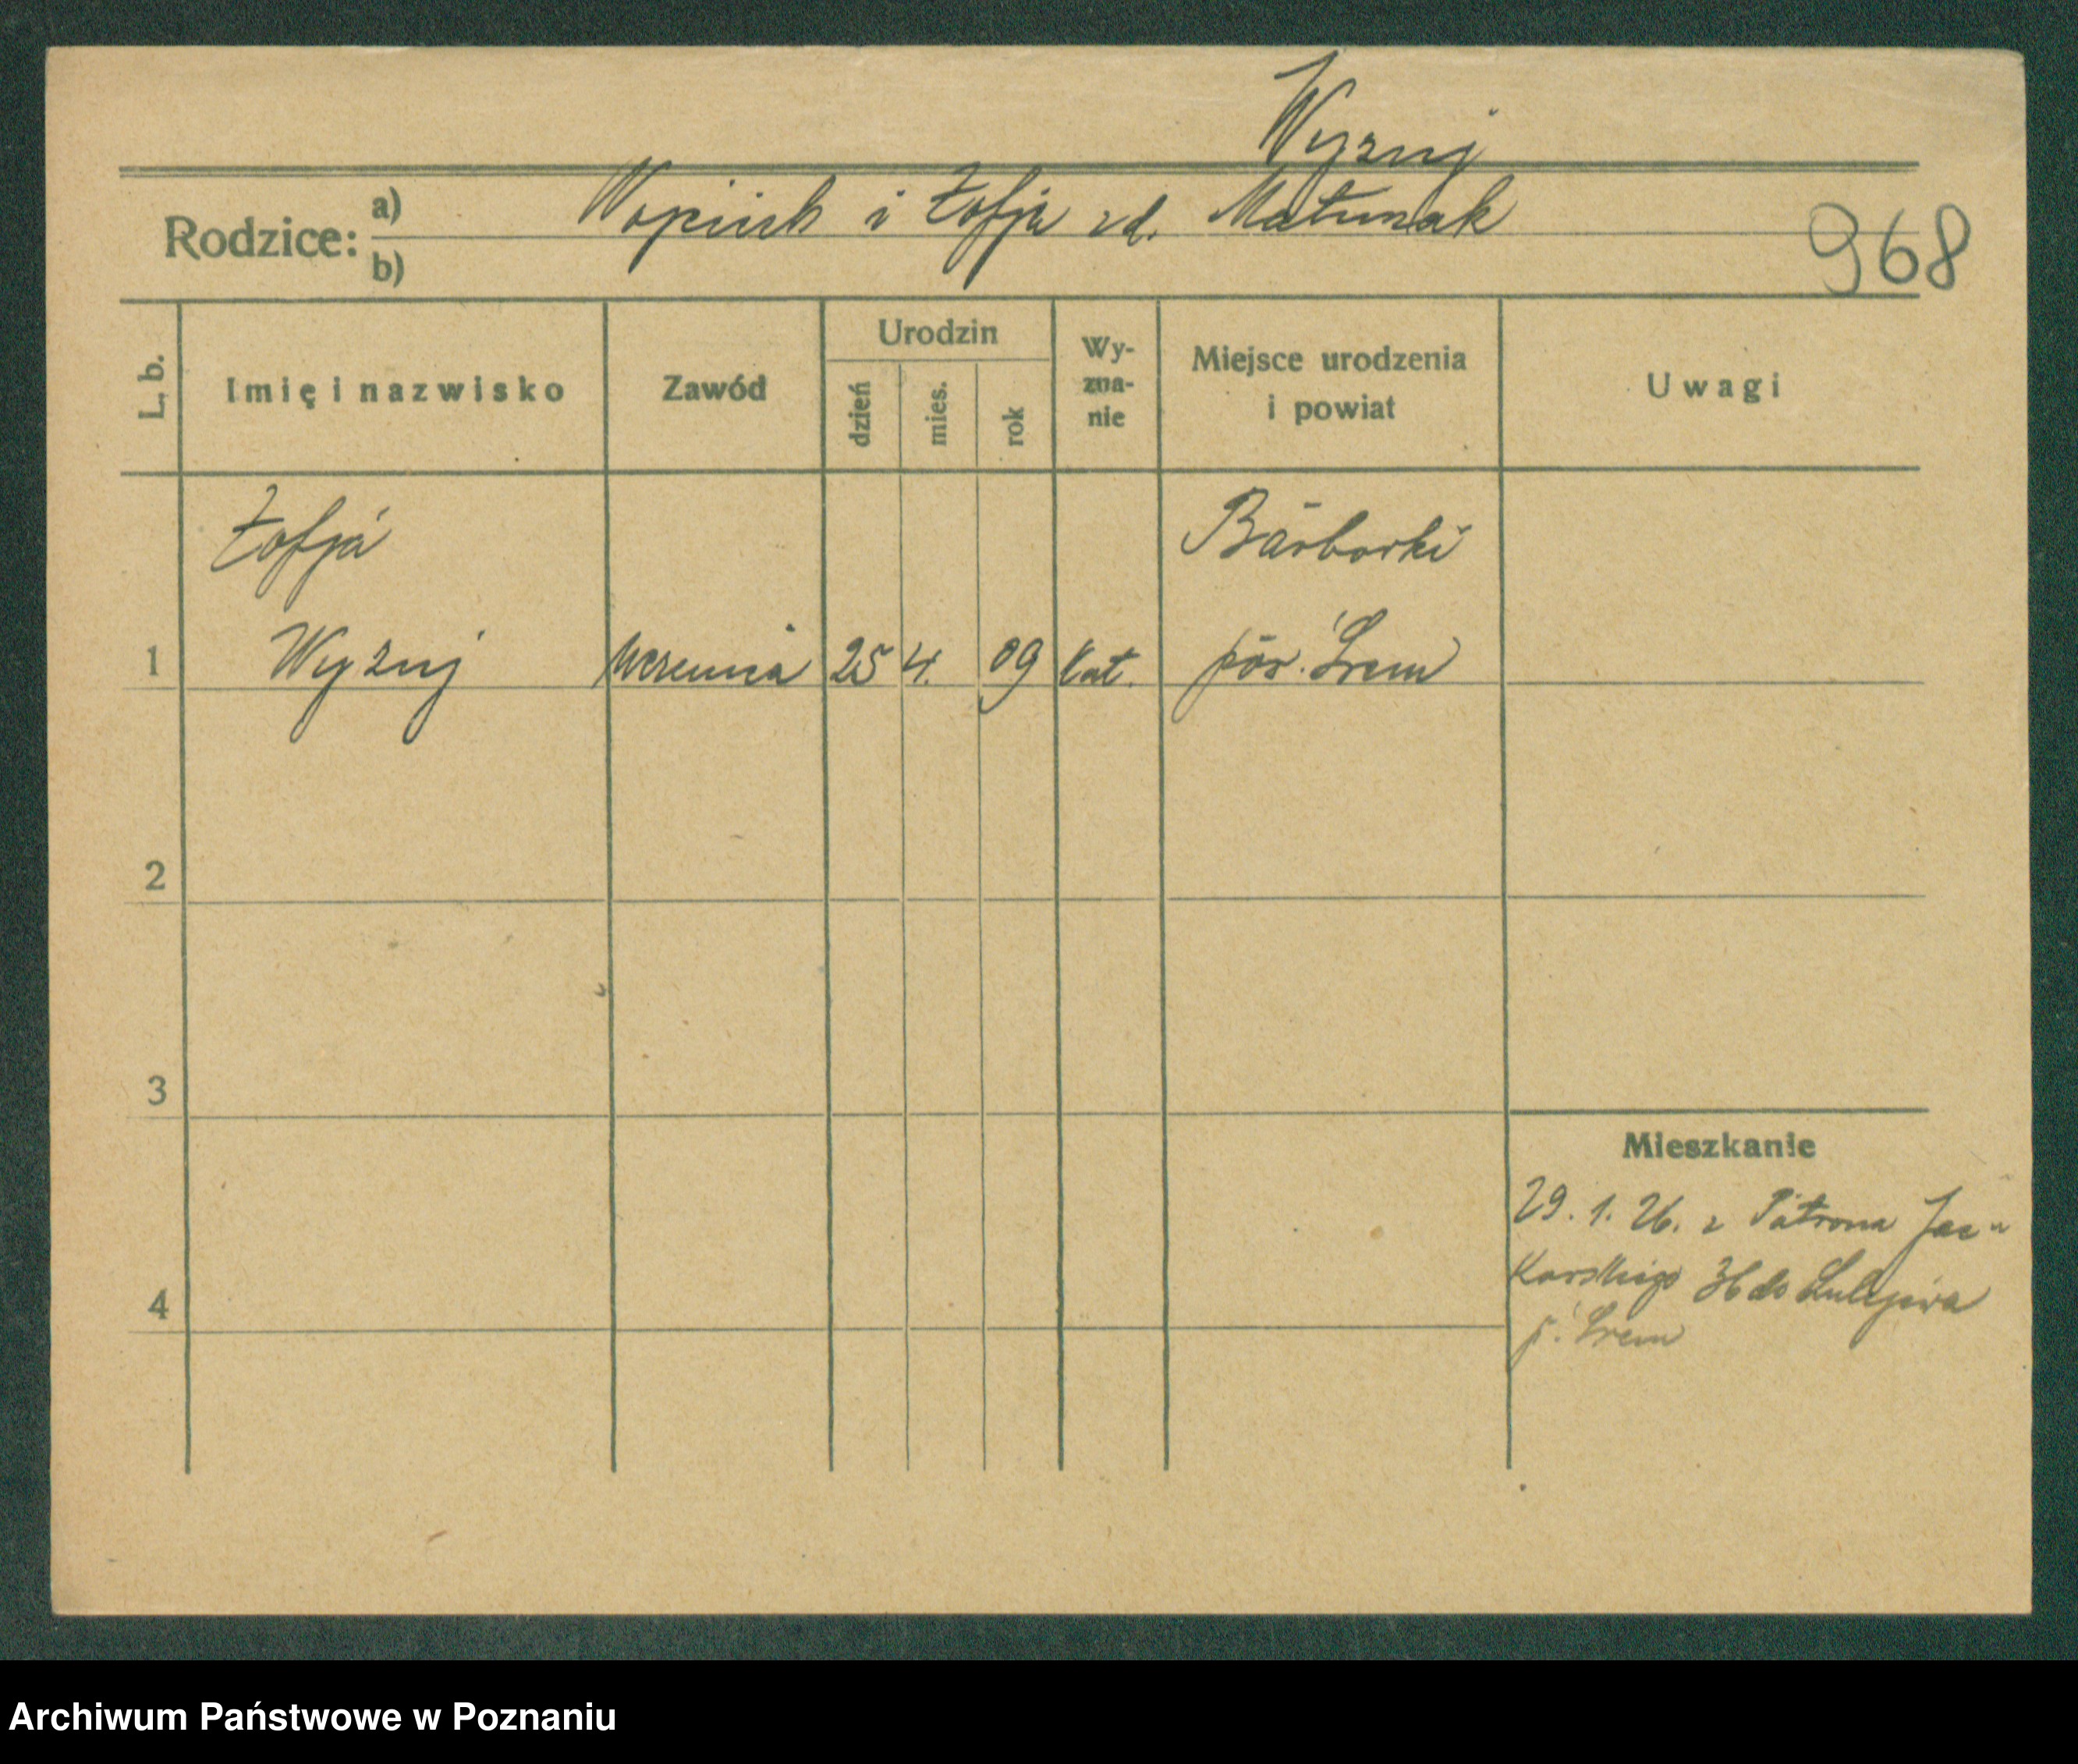 Wyzuj
Rodzice: a) Wojciech i Zofja zd. Matuszak
b)
968
L. b.
Imię i nazwisko
Zawód
Urodzin
dzień
mies.
rok
Wy-
zna-
nie
Miejsce urodzenia
i powiat
Uwagi
Zofja
Bärborki
1 Wyzuj uczenica 25 4. 09 kat. pow. Śrem
2
3
4
Mieszkanie
29. 1. 26. z Patrona Jac-
kowskiego 36 do
p. Śrem
Archiwum Państwowe w Poznaniu